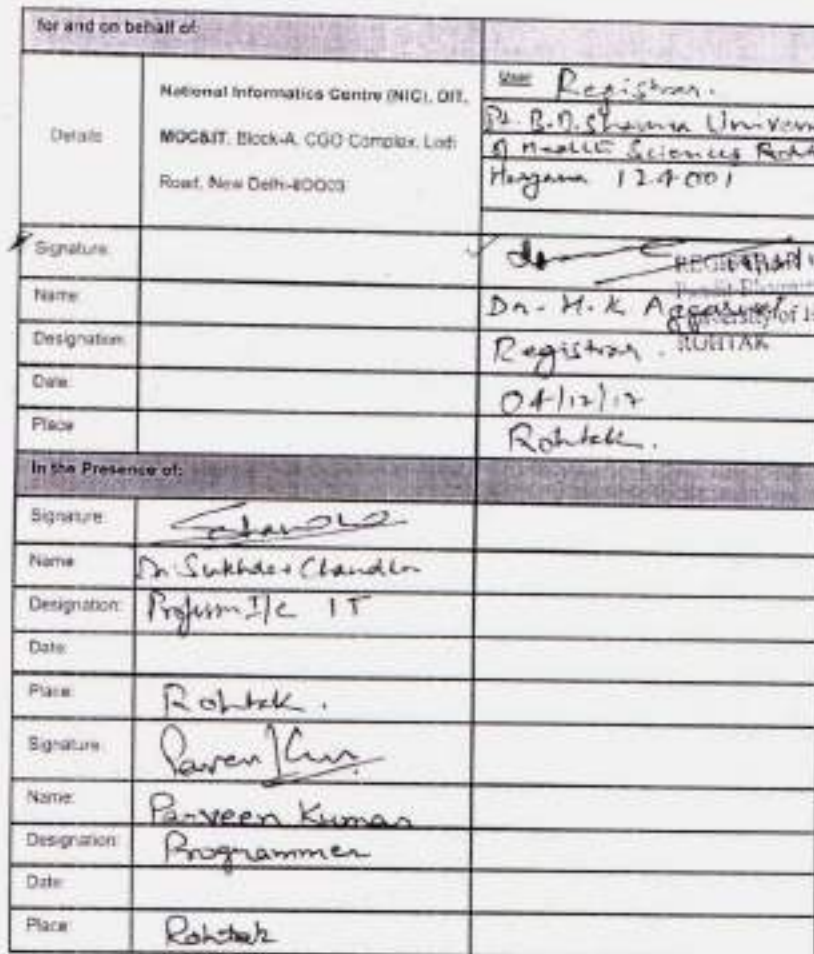 for and on behalf of:
Details
National Informatics Centre (NIC), DIT,
MOC&IT, Block-A, CGO Complex, Lodi
Road, New Delhi-
Registrar.
Pt. B.D. Sharma Univers
of Health Sciences Roht
Haryana 124001
Signature:
REGISTRAR
Name:
Dr. H.K Aggarwal
University of
Designation:
Registrar.
ROHTAK
Date:
04/12/17
Place
Rohtak.
In the Presence of:
Signature:
Name
Dr. Sukhdev Chandla
Designation:
Professor I/c IT
Date:
Place:
Rohtak.
Signature:
Name:
Parveen Kumar
Designation:
Programmer
Date:
Place:
Rohtak